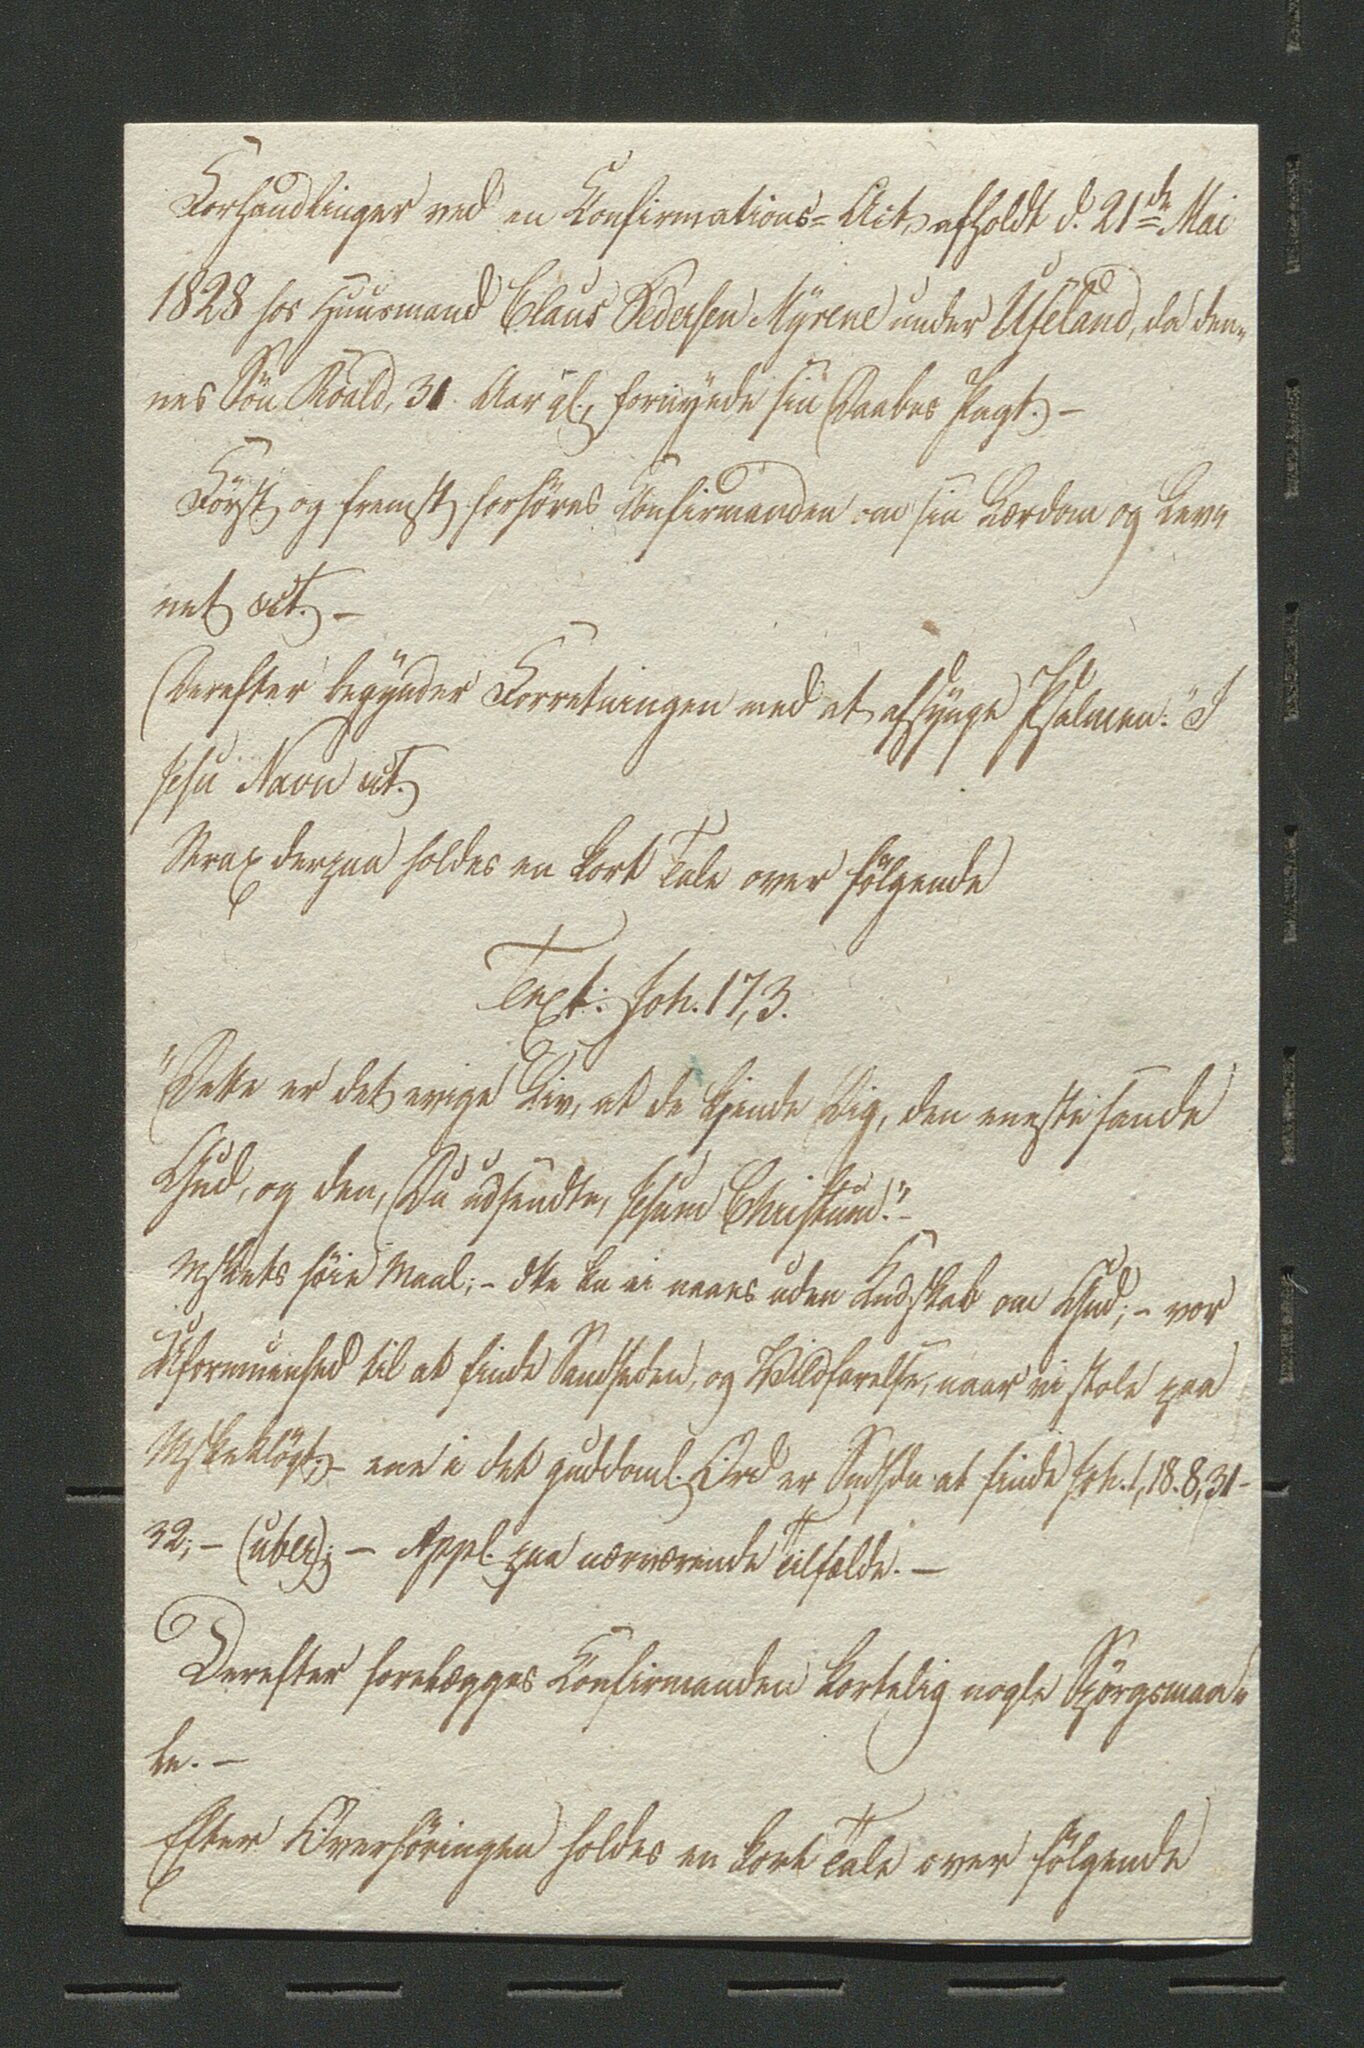 Forhandlinger ved en Confirmations= Act, afholdt d. 21de Mai
1828 hos Huusmand Claus Pedersen Myrene under Ufeland, da den=
nes Sön Roald, 31 Aar gl., fornyede sin Daabes Pagt. –
Först og fremst forhöres Confirmanden om sin Lærdom og Lev=
net etc. –
Derefter begynder Forretningen med at afsynge Psalmen: "I
Jesu Navn etc.
Strax derpaa holdes en kort Tale over fölgende
Text: Joh. 17,3.
"Dette er det evige Liv, at de kjende Dig, den eneste sande
Gud, og den, Du udsendte, Jesum Christum." –
Mskets höie Maal; – dtte kn ei naaes uden Kndskab om Gud; – vor
Uformuenhed til at finde Sandheden, og Vildfarelse, naar vi stole paa
Mskeklögt; – ene i det guddoml. Ord er Sndhdn at finde Joh. 1,18. 8,31–
32; – (uber); – Appl. paa nærværende Tilfælde. –
Derefter forelægges Confirmanden kortelig nogle Spörgsmaa=
le. –
Efter Overhöringen holdes en kort Tale over fölgende